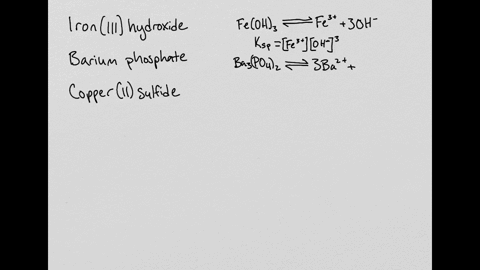 Iron (III) hydroxide
Barium phosphate
Copper (II) sulfide
Fe(OH)₃ ⇌ Fe³⁺ + 3OH⁻
Ksp = [Fe³⁺][OH⁻]³
Ba₃(PO₄)₂ ⇌ 3Ba²⁺ +